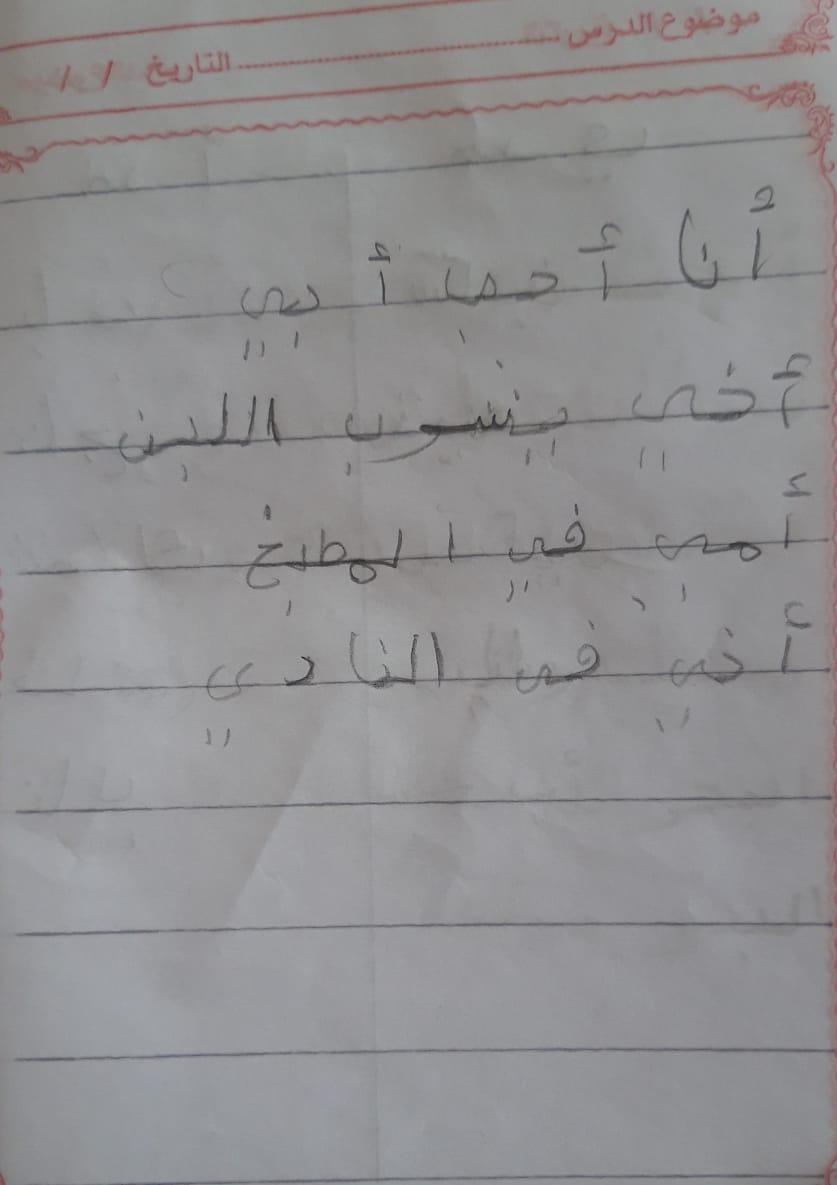 موضوع الدرس ............ التاريخ / /
أنا أحب أبي
أخي يشرب اللبن
أمي في المطبخ
أخي في النادي